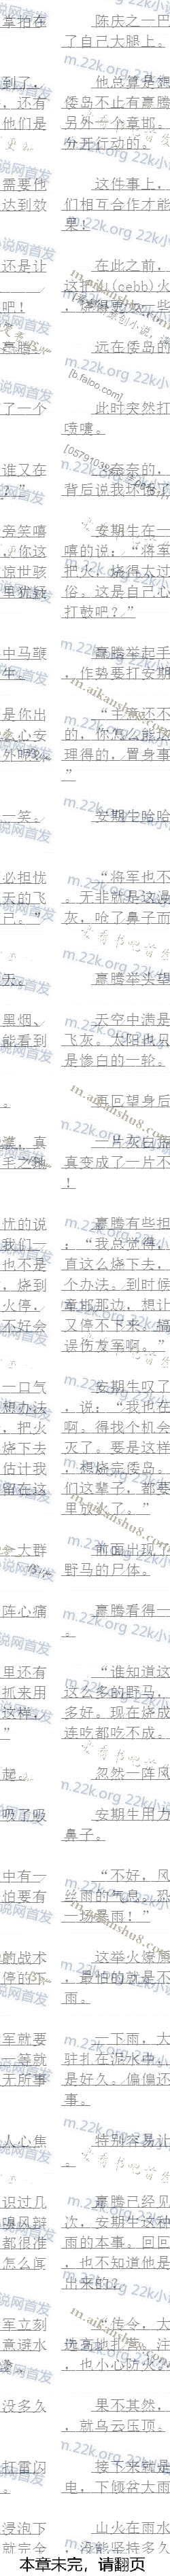 掌拍在
到了，
，还有
他们是
需要他
达到效
还是让
吧！
嬴腾，
了一个
谁又在
？”
旁笑嘻
，你这
惊世骇
里犹疑
中马鞭
生。
是你出
么心安
外吗？
一笑。
必担忧
天的飞
己。”
天。
黑烟、
能看到
。
谯，真
毛之地
忧的说
我们一
也不是
，烧到
火停，
不好会
一口气
想办法
，把火
烧下去
估计我
留在这
大群
阵心痛
里还有
抓来用
这样，
”
起。
吸了吸
中有一
怕要有
的战术
停的下
军就要
一等就
无所事
人心焦
识过几
嗅风辩
都很准
怎么闻
军立刻
意避水
没多久
打雷闪
。
浸泡下
就完全
陈庆之一巴
了自己大腿上。
他总算是想
倭岛不止有嬴腾
另外一个章邯。
分开行动的。
这件事上，
们相互合作才能
果！
在此之前，
这把山(cebb)火
，烧得更厉一些
远在倭岛的
此时突然打
喷嚏。
“奶奶的，
背后说我坏话了
安期生在一
嘻的说：“将军
把火，烧得太过
俗。这是自己心
打鼓吧？”
嬴腾举起手
，作势要打安期
“主意还不
的，你怎么能这
理得的，置身事
”
安期生哈哈
“将军也不
。无非就是这漫
灰，呛了鼻子而
嬴腾举头望
天空中满是
飞灰。太阳也只
是惨白的一轮。
再回望身后
一片灰白
真变成了一片不
！
嬴腾有些担
：“我总觉得，
直这么烧下去，
个办法。到时候
章邯那边，想让
又停不下来，搞
误伤友军啊。”
安期生叹了
，说：“我也在
啊。得找个机会
灭了。要是这样
，想烧完倭岛。
们这辈子，都要
里放火了。”
前面出现一
野马的尸体。
嬴腾看得一
。
“谁知道这
这么多的野马，
多好。现在烧成
连吃都吃不成。
忽然一阵风
安期生用力
鼻子。
“不好，风
丝雨的气息。恐
一场暴雨！”
这举火燎原
，最怕的就是不
雨。
一下雨，大
驻扎在泥水中，
是好久。偏偏还
事。
特别容易让
。
嬴腾已经见
次，安期生这种
雨的本事。回回
，也不知道他是
出来的？
“传令，大
选高地扎营。注
，也小心防火。”
果不其然，
，就乌云压顶。
接下来就是
电，下倾盆大雨
山火在雨水
，没能坚持多久
本章未完，请翻页